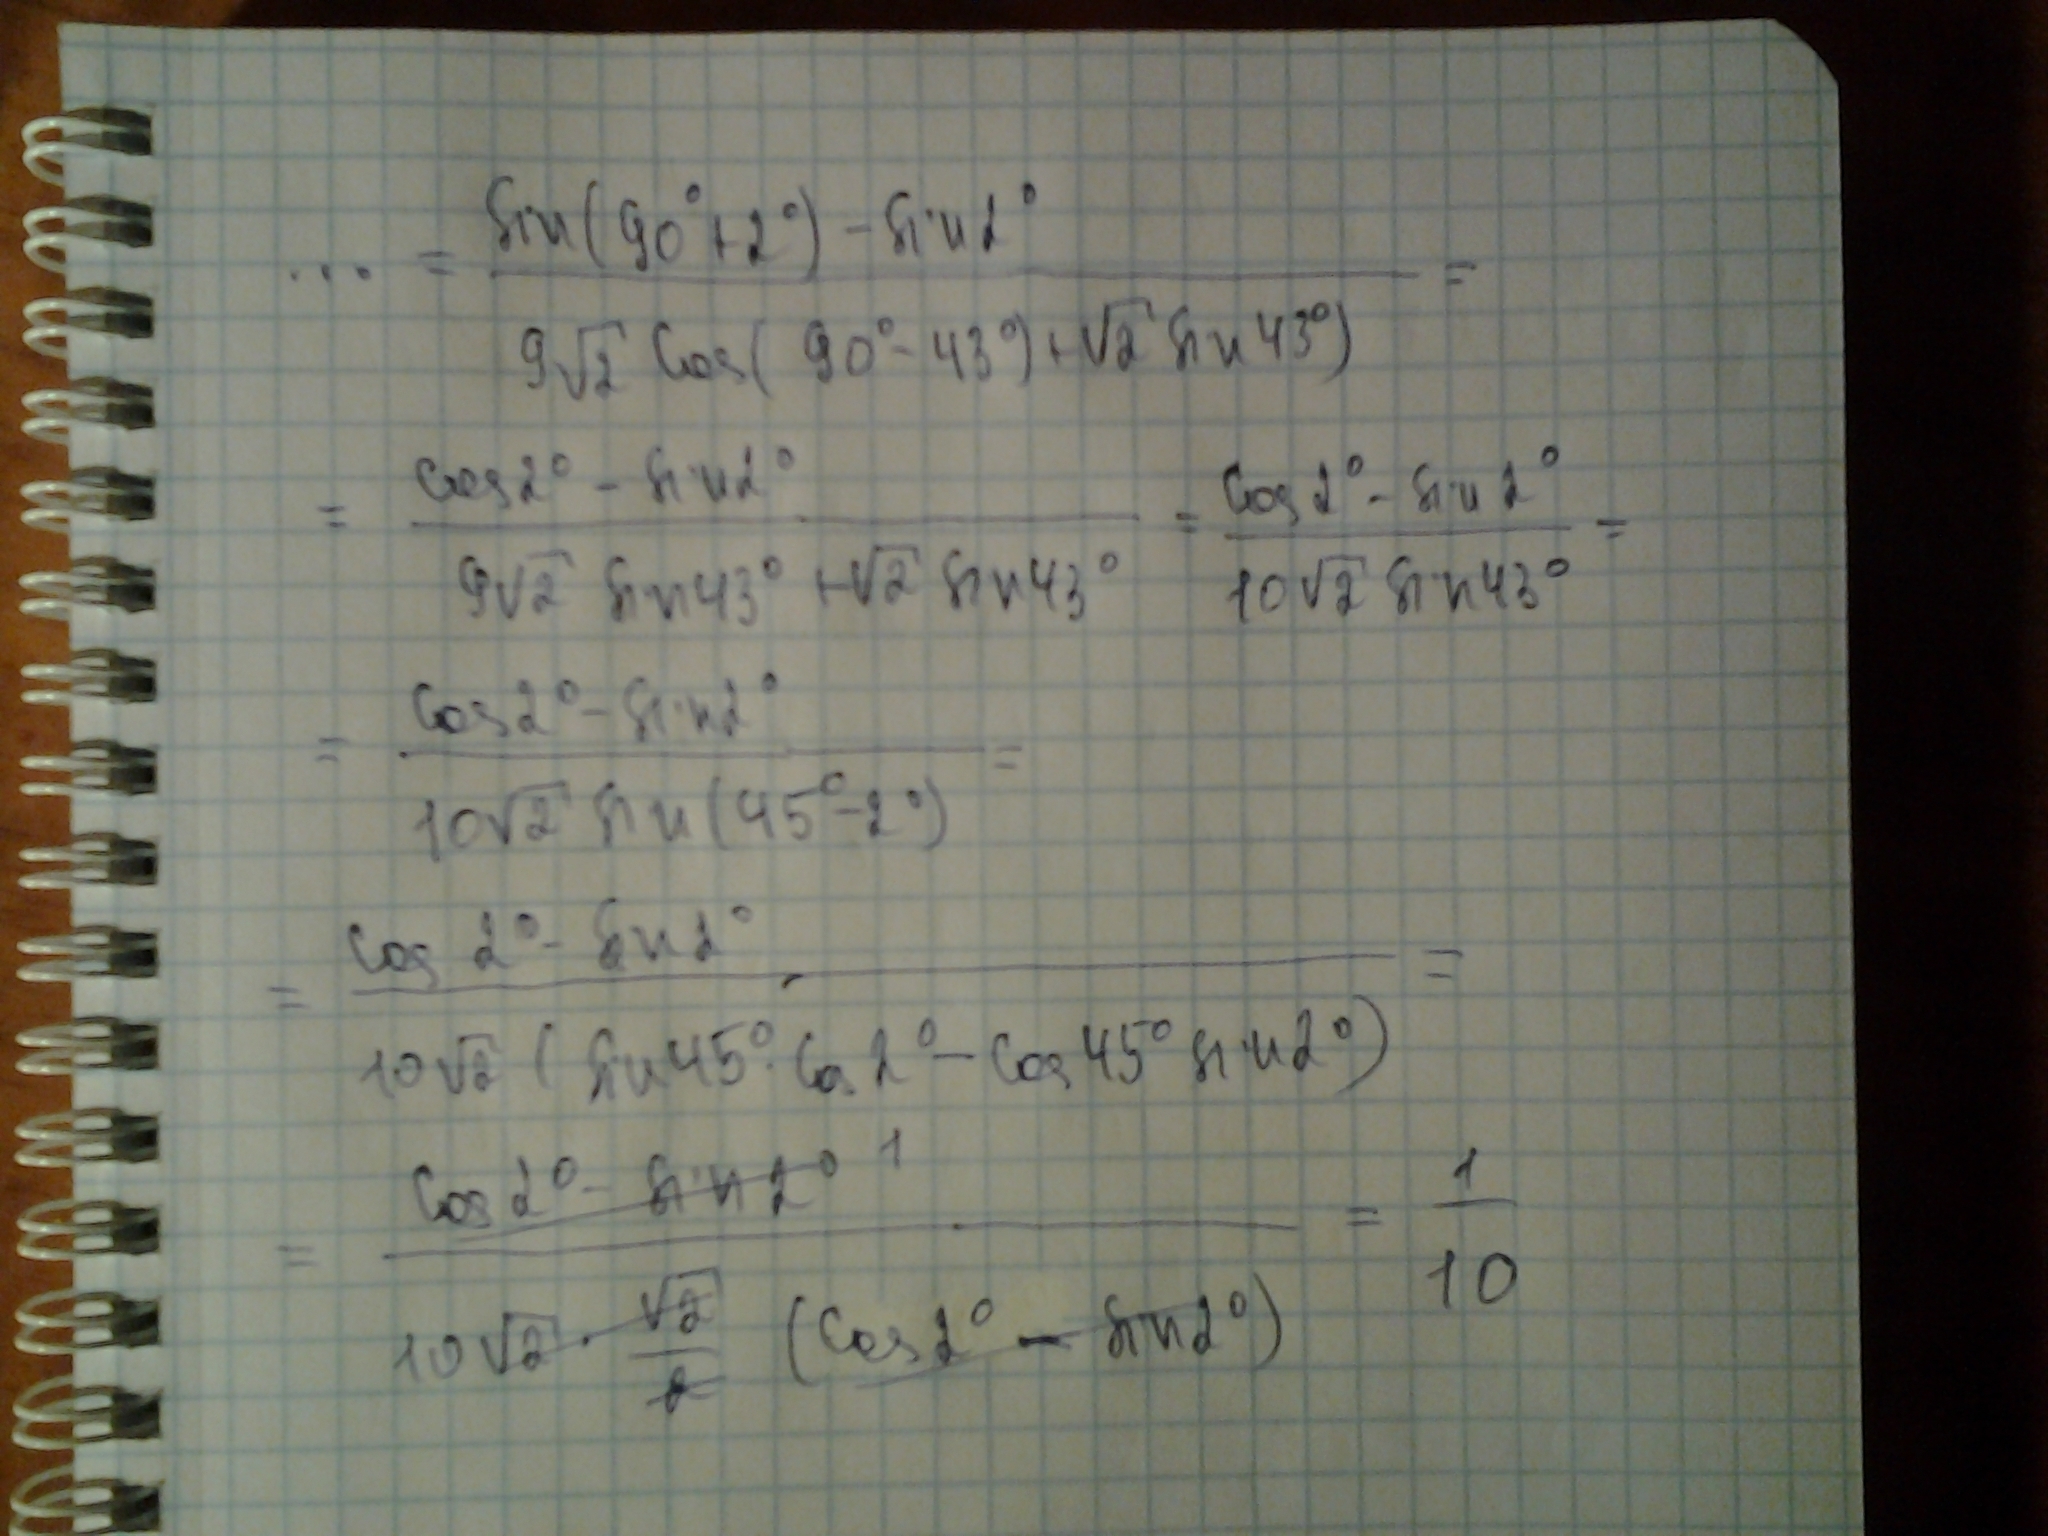 ... = sin(90°+2°) - sin2° / 9√2 cos(90°-43°)+√2 sin43°) =
= cos2° - sin2° / 9√2 sin43° +√2 sin43° = cos2° - sin2° / 10√2 sin43° =
= cos2° - sin2° / 10√2 sin(45°-2°) =
= cos 2° - sin2° / 10√2 (sin45°·cos2° - cos45° sin2°) =
= cos2° - sin2° 1 / 10√2 · √2/2 (cos2° - sin2°) = 1/10